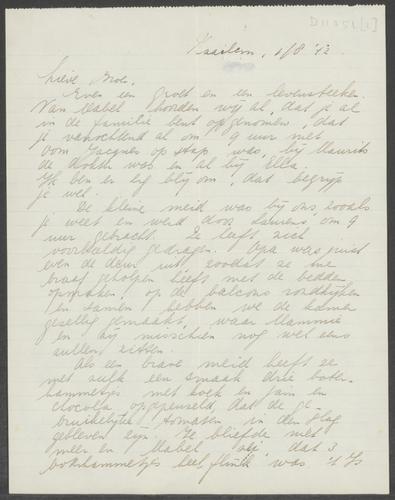 D11051[1]
Haarlem, 1/8 '42
Lieve Broer,
Even een groet en een levensteeken.
Van Mabel hoorden wij al, dat je al
in de familie bent opgenomen, dat
je vanochtend al om 9 uur met
oom Jacques op stap was, bij Maurits
de dokter was en al bij Ella.
Ik ben er erg blij om, dat begrijp
je wel.
De kleine meid was bij ons, zooals
je weet en werd door om 9
uur gebracht. Ze heeft zich
voorbeeldig gedragen. Opa was juist
even de deur uit, zoodat ze me
braaf geholpen heeft met de bedden
opmaken, op de balcons rondkijken
en samen hebben we de kamer
gezellig gemaakt, waar Mammie
en zij misschien nog wel eens
zullen zitten.
Als een brave meid heeft ze
met zulk een smaak drie boter-
hammetjes met koek en jam en
opgepeuzeld, dat de ge-
bruikelijke tomaten in den
gebleven zijn. Ze bliefde niet
meer en Mabel zei, dat 3
boterhammetjes heel flink was. 't Is